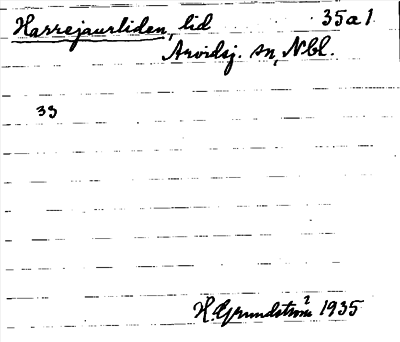 Harrejaurliden, lid 35a1
Arvidsj. sn, Nbl.
33
H. Grundström 1935